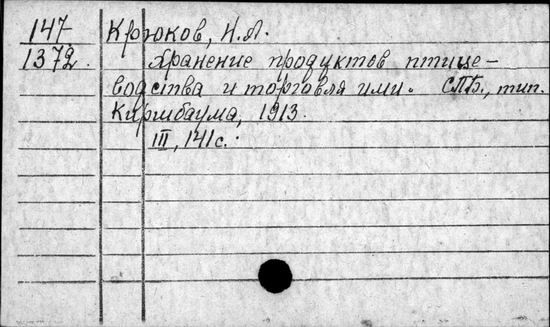 147 Крюков, Н.А.
1372. Хранение продуктов птице-
водства и торговля ими. СПБ., тип.
Киршбаума, 1913.
III, 141с.